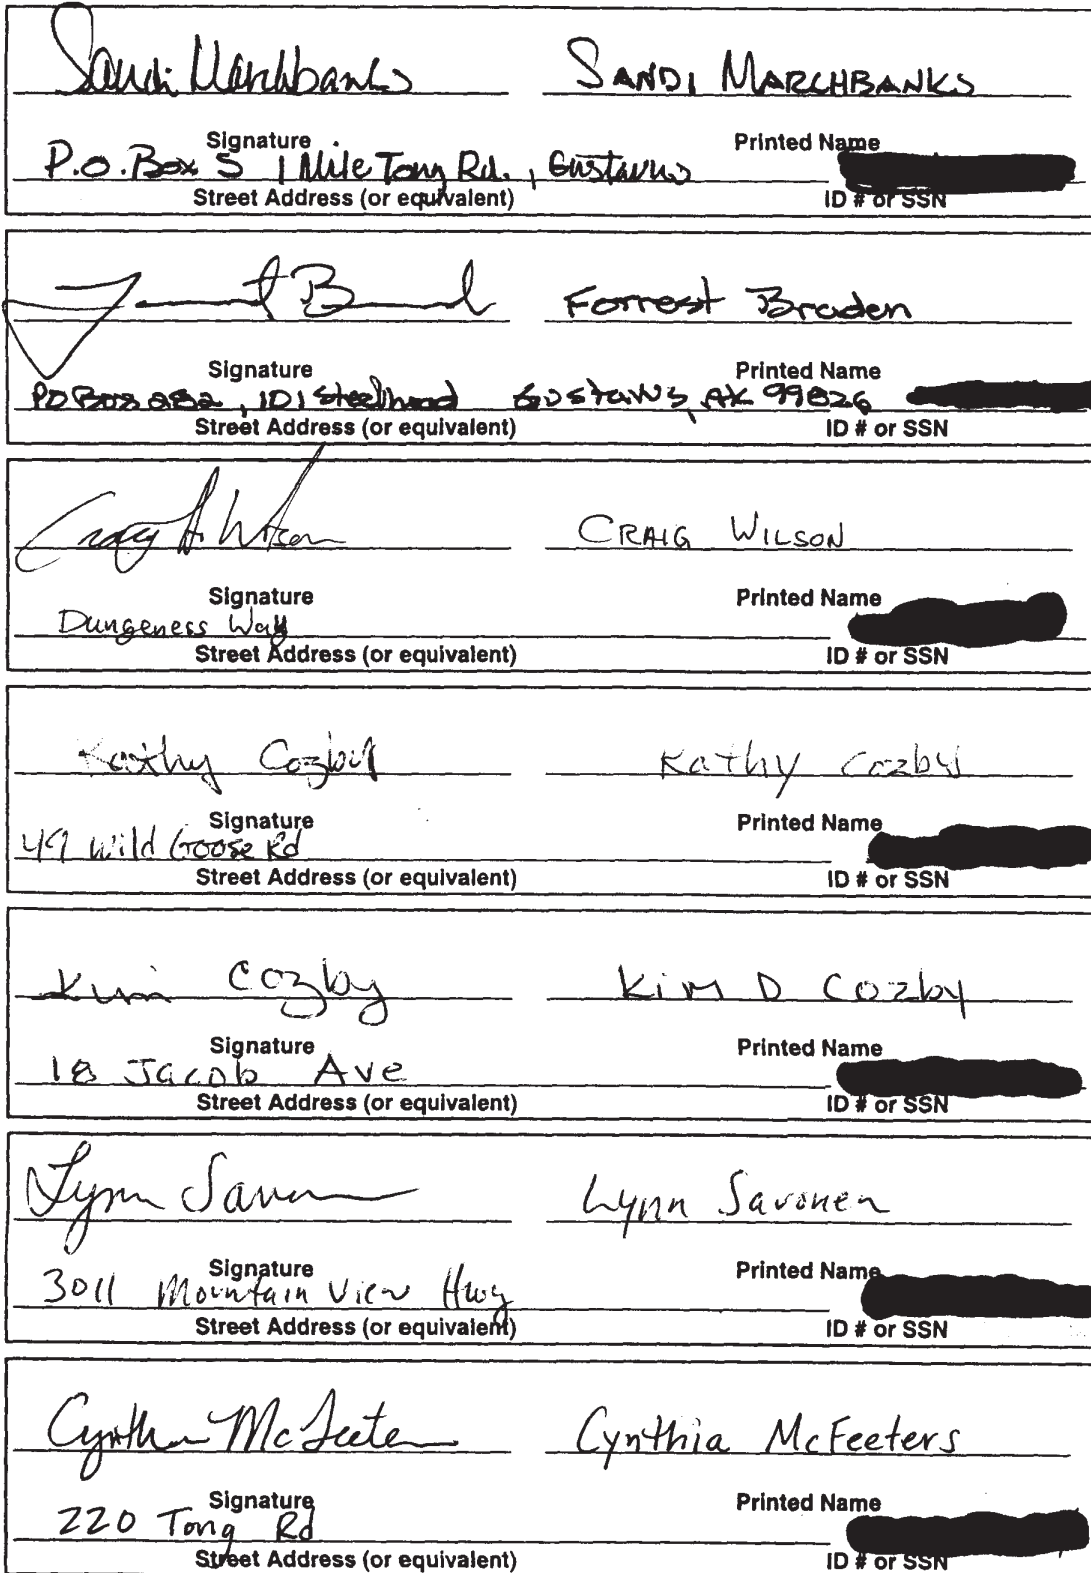 Sandi Marchbanks SANDI MARCHBANKS
Signature Printed Name
P.O. Box 5 1 Mile Tong Rd., Gustavus
Street Address (or equivalent) ID # or SSN
Forrest Braden
Signature Printed Name
PO Box 282, 101 Steelhead Gustavus, AK 99826
Street Address (or equivalent) ID # or SSN
Craig A. Wilson CRAIG WILSON
Signature Printed Name
Dungeness Way
Street Address (or equivalent) ID # or SSN
Kathy Cozby Kathy Cozby
Signature Printed Name
49 Wild Goose Rd
Street Address (or equivalent) ID # or SSN
Kim Cozby Kim D Cozby
Signature Printed Name
18 Jacob Ave
Street Address (or equivalent) ID # or SSN
Lynn Savonen
Signature Printed Name
3011 Mountain View Hwy
Street Address (or equivalent) ID # or SSN
Cynthia McFeeters Cynthia McFeeters
Signature Printed Name
220 Tong Rd
Street Address (or equivalent) ID # or SSN